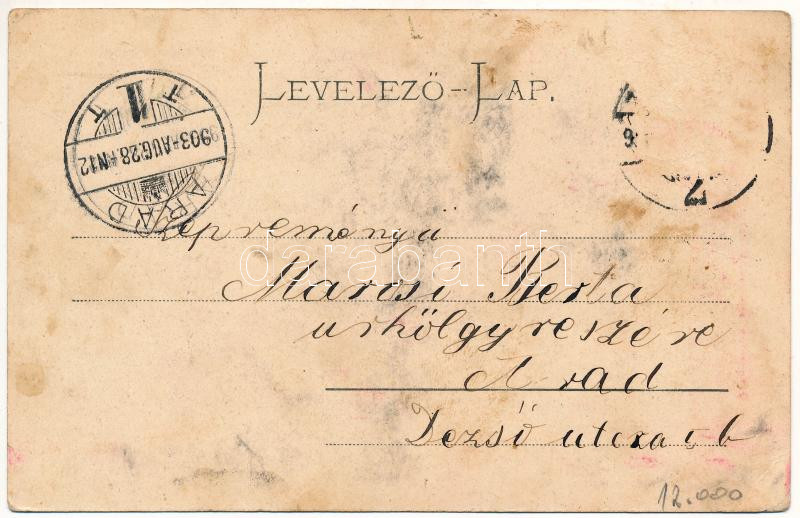 LEVELEZŐ-LAP.
ARAD
903 AUG. 28. N12
T 11 T
Szépreményü
Marosi Berta
urhölgy részére
Arad
Dezső utcza 5 b
darabanth
12.000